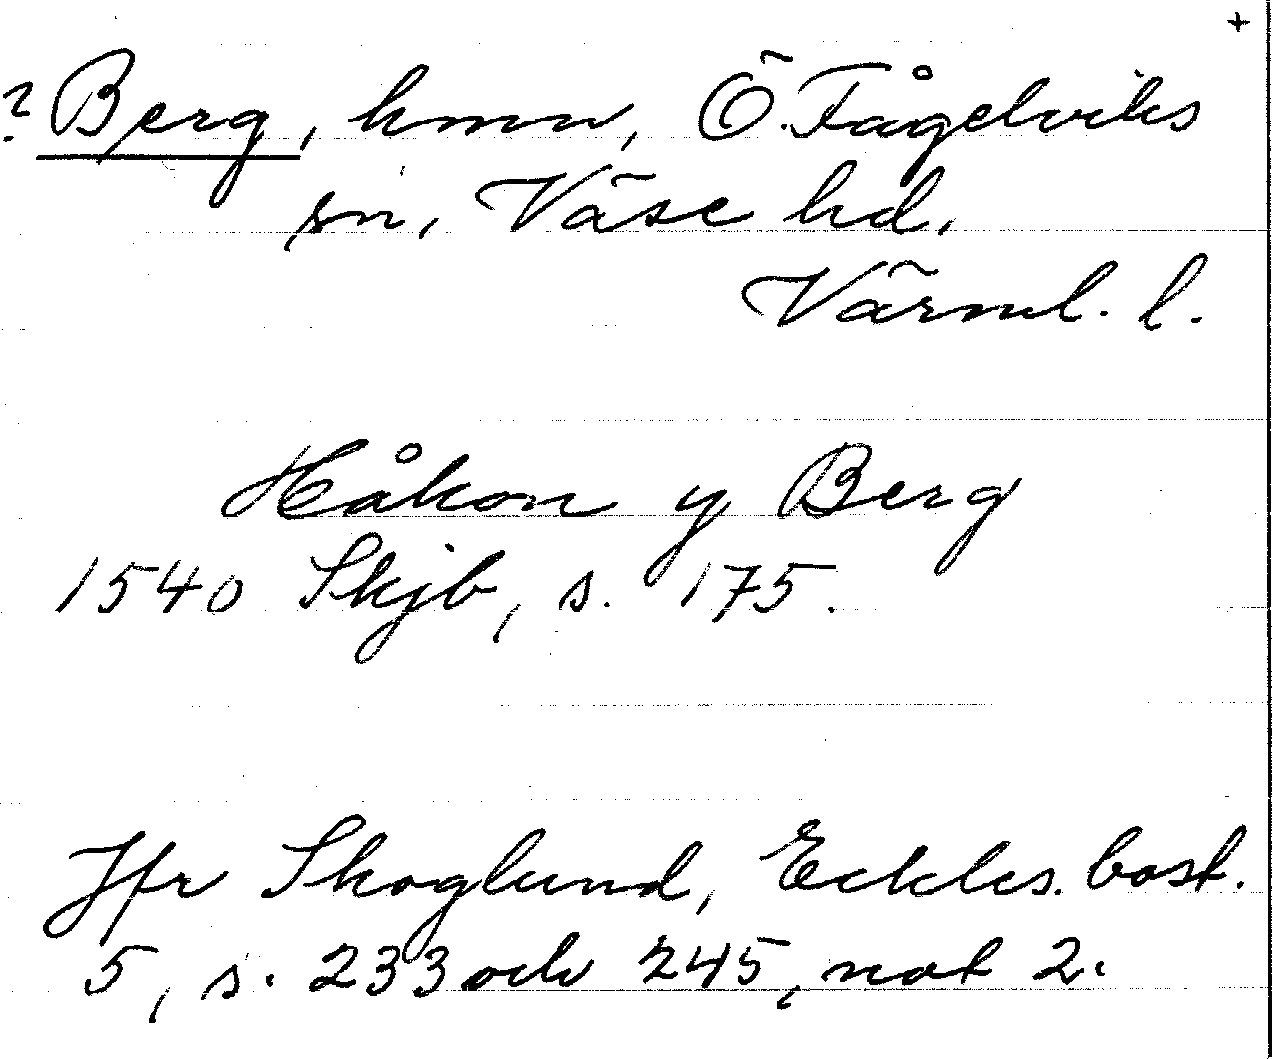 +
? Berg, hmn, Ö. Fågelviks
sn, Väse hd,
Värml. l.
Håkon y Berg
1540 Skjb, s. 175.
Jfr Skoglund, Eckles. bost.
5, s. 233 och 245, not 2.